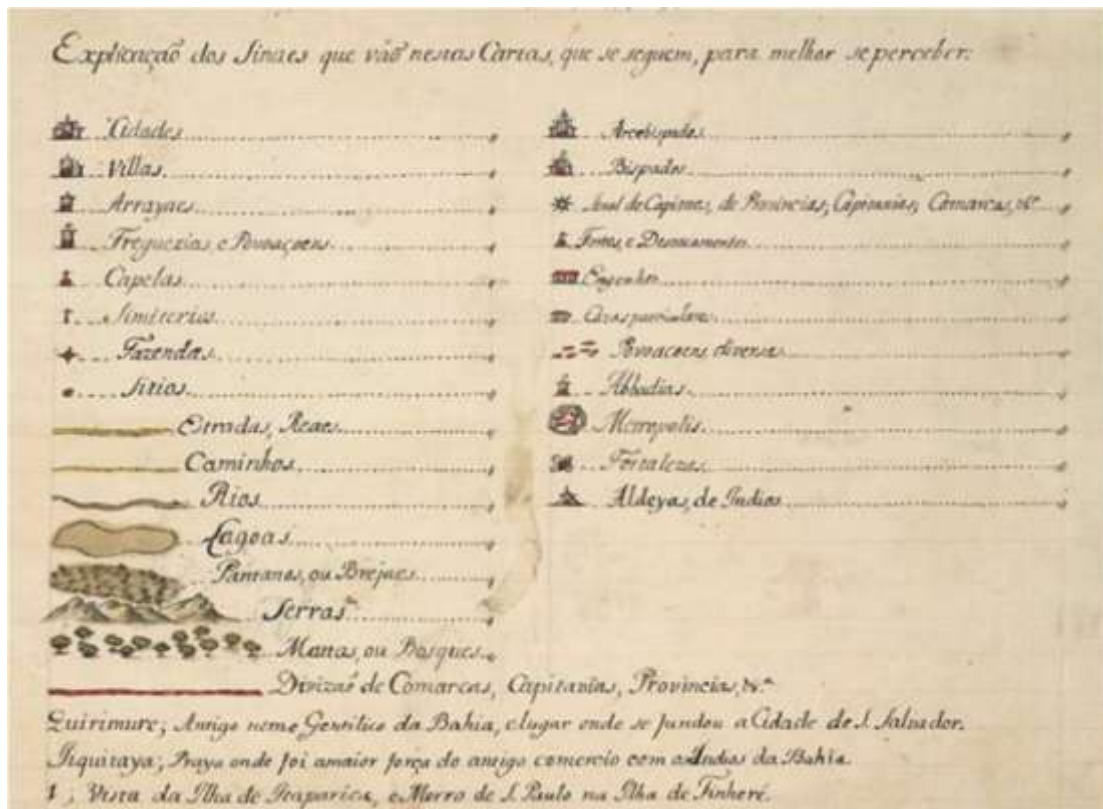 Explicaçaõ dos Sinaes que vaõ nestas Cartas, que se seguem, para melhor se perceber.
Cidades
Villas
Arrayaes
Freguezias, e Povoaçoens
Capelas
Simiterios
Fazendas
Sitios
Estradas, Reaes
Caminhos
Rios
Lagoas
Pantanos, ou Brejaes
Serras
Matas, ou Bosques
Divizaõ de Comarcas, Capitanias, Provincias, &ª
Arcebispados
Bispados
Sinal de Capitaes, de Provincias, Capitanias, Comarcas, &ª
Fortes, e Destacamentos
Engenhos
Cazas particulares
Povoacoens diversas
Abbadias
Metropolis
Fortalezas
Aldeyas, de Indios
Quirimure; Antigo nome Gentilico da Bahia, e lugar onde se fundou a Cidade de S. Salvador.
Praya onde foi a maior força do antigo comercio com os Indios da Bahia.
1; Vista da Ilha de Itaparica, e Morro de S. Paulo na Ilha de Tinheré.